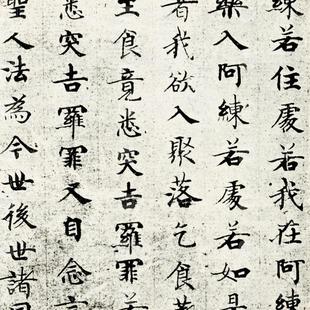 練若住處若我在阿練
藥入阿練若處若如是
著我欲入聚落乞食著
王食竟悉突吉羅罪若
悉突吉羅罪又自念言
聖人法為今世後世諸